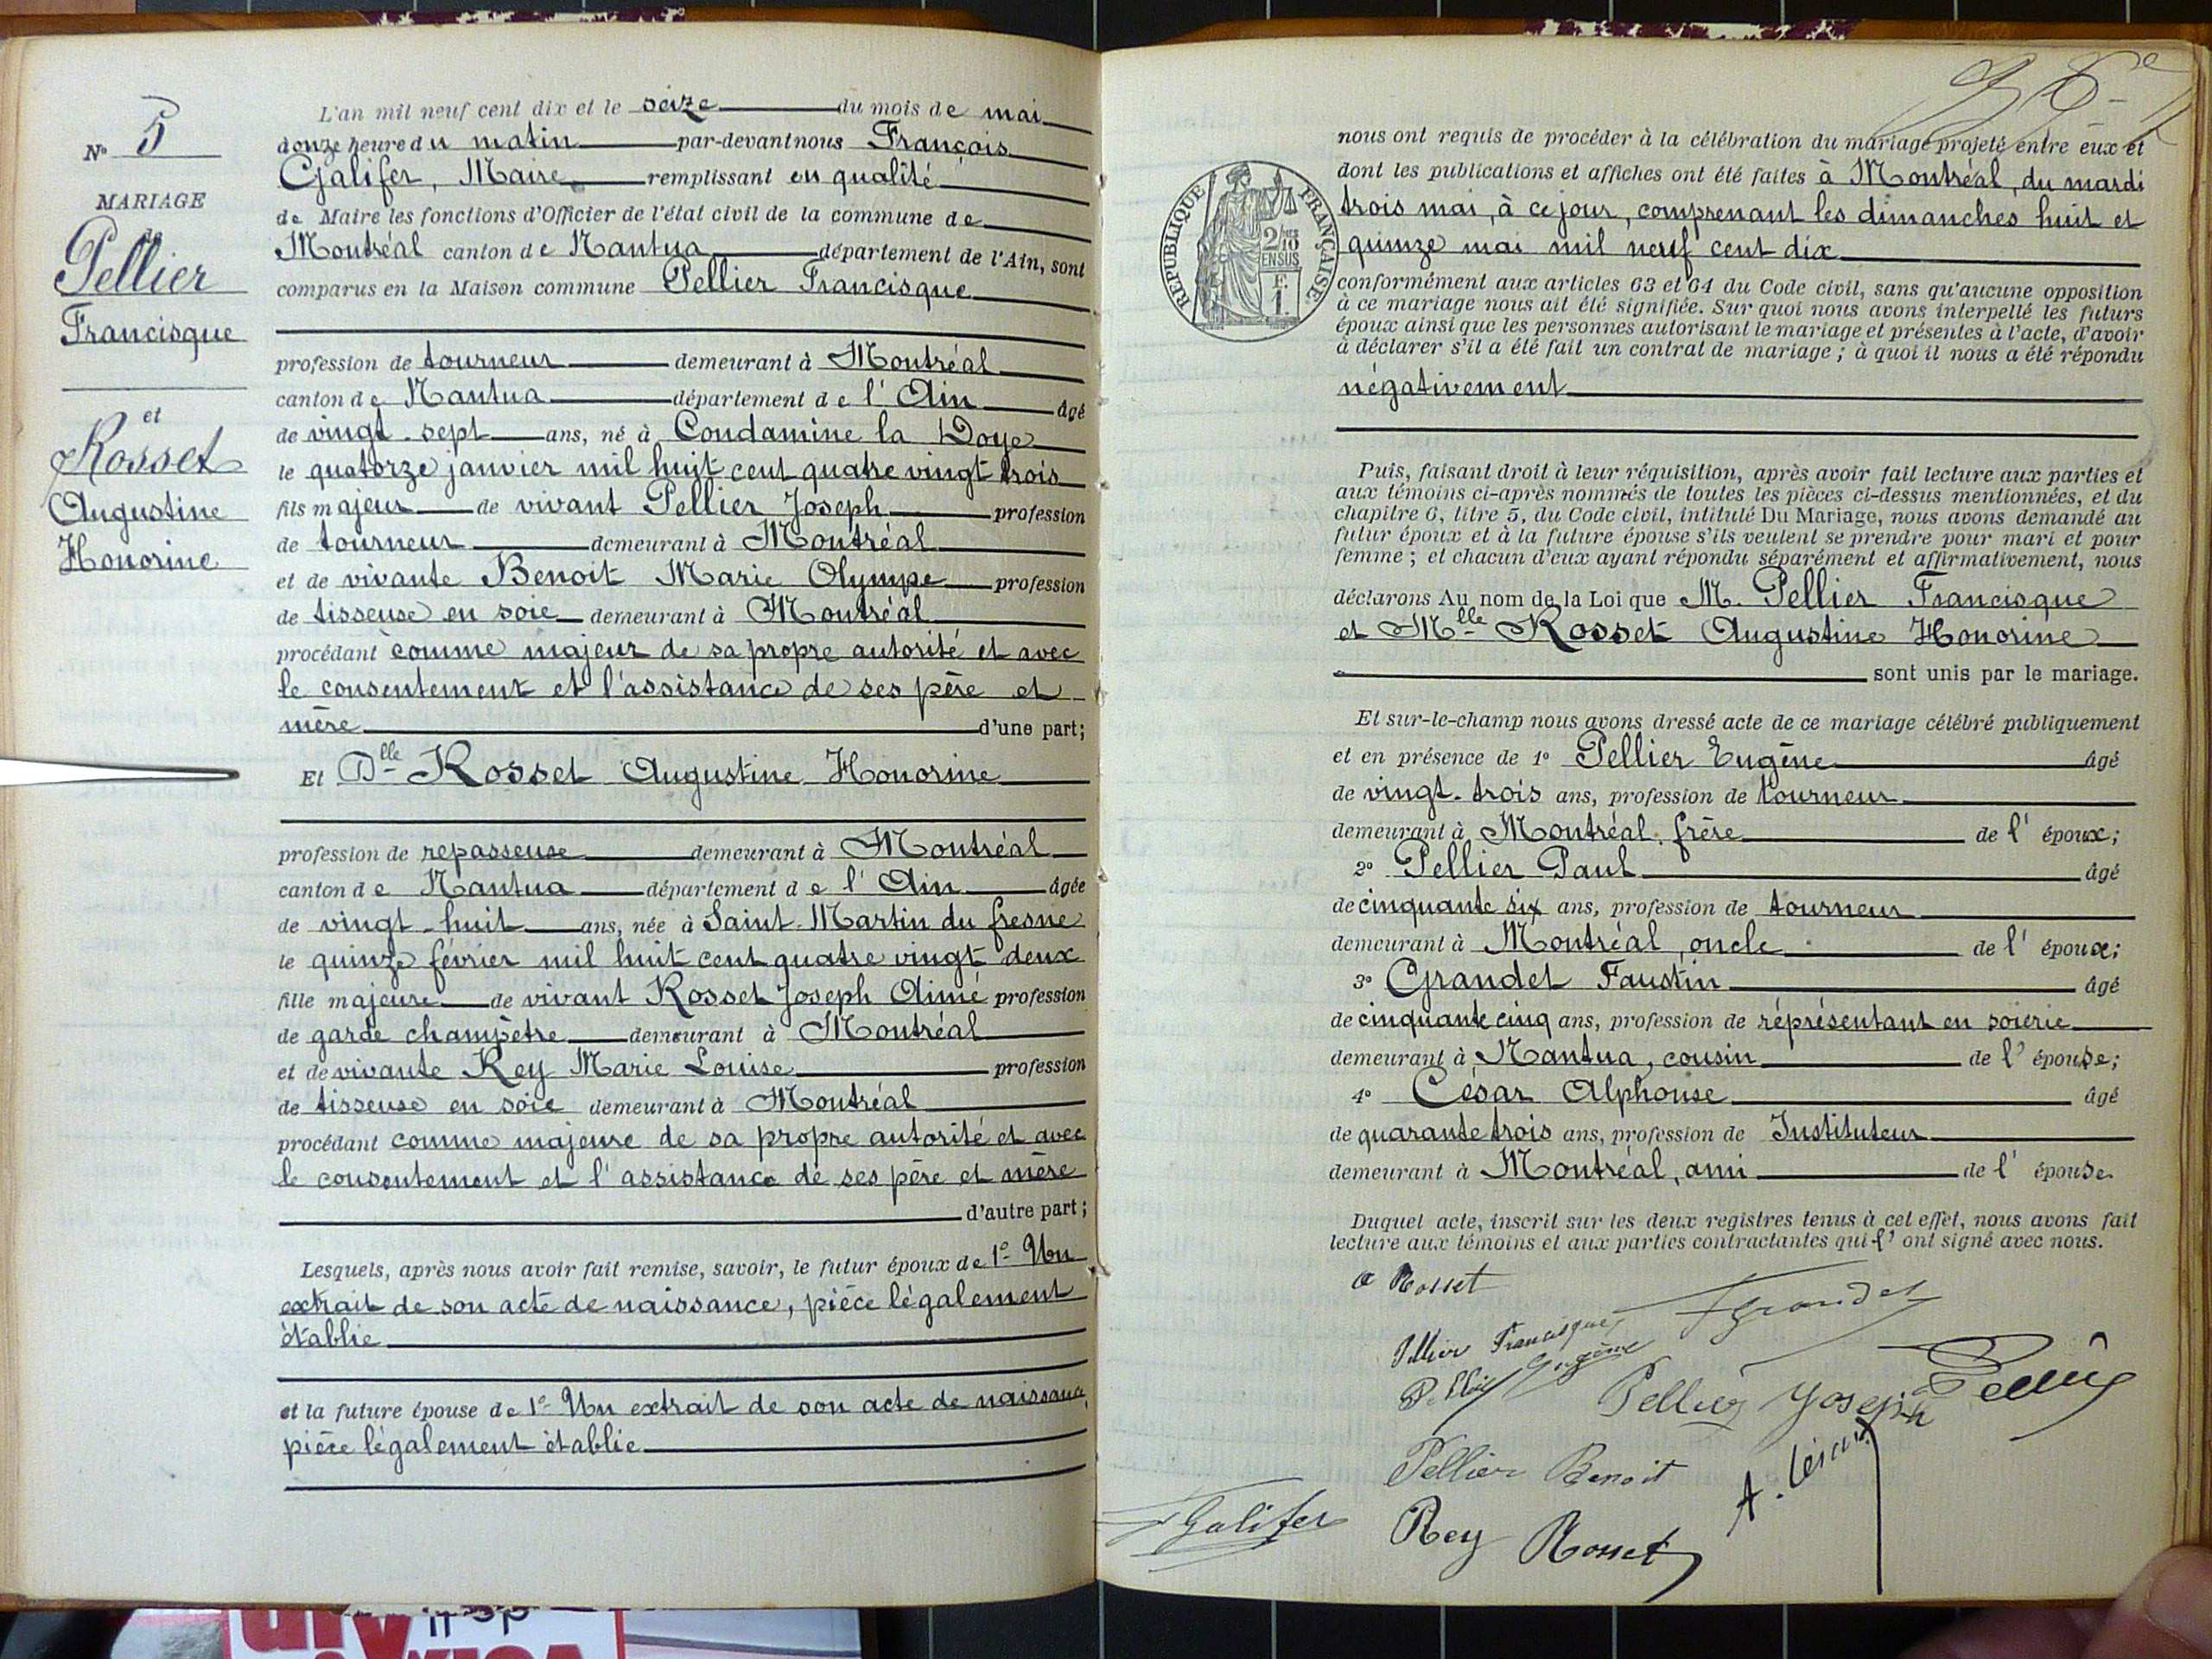 N° 5
MARIAGE
de
Pellier
Francisque
et
Rosset
Augustine
Honorine
L'an mil neuf cent dix et le seize du mois de mai
donze heure du matin par-devant nous François
Galifer, Maire remplissant en qualité
de Maire les fonctions d'Officier de l'état civil de la commune de
Montréal canton de Nantua département de l'Ain, sont
comparus en la Maison commune Pellier Francisque
profession de tourneur demeurant à Montréal
canton de Nantua département de l'Ain âgé
de vingt-sept ans, né à Condamine la Doye
le quatorze janvier mil huit cent quatre vingt trois
fils majeur de vivant Pellier Joseph profession
de tourneur demeurant à Montréal
et de vivante Benoit Marie Olympe profession
de tisseuse en soie demeurant à Montréal
procédant comme majeur de sa propre autorité et avec
le consentement et l'assistance de ses père et
mère d'une part;
Et Dlle Rosset Augustine Honorine
profession de repasseuse demeurant à Montréal
canton de Nantua département de l'Ain âgée
de vingt-huit ans, née à Saint-Martin du fresne
le quinze février mil huit cent quatre vingt deux
fille majeure de vivant Rosset Joseph Aimé profession
de garde champêtre demeurant à Montréal
et de vivante Rey Marie Louise profession
de tisseuse en soie demeurant à Montréal
procédant comme majeure de sa propre autorité et avec
le consentement et l'assistance de ses père et mère
d'autre part;
Lesquels, après nous avoir fait remise, savoir, le futur époux de 1° Un
extrait de son acte de naissance, pièce légalement
établie
et la future épouse de 1° Un extrait de son acte de naissance,
pièce légalement établie
nous ont requis de procéder à la célébration du mariage projeté entre eux et
dont les publications et affiches ont été faites à Montréal, du mardi
trois mai, à ce jour, comprenant les dimanches huit et
quinze mai mil neuf cent dix
RÉPUBLIQUE FRANÇAISE
2/10
EN SUS
F.
1.
conformément aux articles 63 et 64 du Code civil, sans qu'aucune opposition
à ce mariage nous ait été signifiée. Sur quoi nous avons interpellé les futurs
époux ainsi que les personnes autorisant le mariage et présentes à l'acte, d'avoir
à déclarer s'il a été fait un contrat de mariage; à quoi il nous a été répondu
négativement
Puis, faisant droit à leur réquisition, après avoir fait lecture aux parties et
aux témoins ci-après nommés de toutes les pièces ci-dessus mentionnées, et du
chapitre 6, titre 5, du Code civil, intitulé Du Mariage, nous avons demandé au
futur époux et à la future épouse s'ils veulent se prendre pour mari et pour
femme; et chacun d'eux ayant répondu séparément et affirmativement, nous
déclarons Au nom de la Loi que M. Pellier Francisque
et Mlle Rosset Augustine Honorine
sont unis par le mariage.
Et sur-le-champ nous avons dressé acte de ce mariage célébré publiquement
et en présence de 1° Pellier Eugène âgé
de vingt-trois ans, profession de tourneur
demeurant à Montréal, frère de l'époux;
2° Pellier Paul âgé
de cinquante six ans, profession de tourneur
demeurant à Montréal, oncle de l'époux;
3° Grandet Faustin âgé
de cinquante cinq ans, profession de réprésentant en soierie
demeurant à Nantua, cousin de l'épouse;
4° César Alphonse âgé
de quarante trois ans, profession de Instituteur
demeurant à Montréal, ami de l'épouse
Duquel acte, inscrit sur les deux registres tenus à cet effet, nous avons fait
lecture aux témoins et aux parties contractantes qui l'ont signé avec nous.
a Rosset
Pellier Francisque
Grandet
Pellier Eugène
Pellier Joseph
Pellier
Pellier Benoit
A. César
Galifer
Rey Rosset